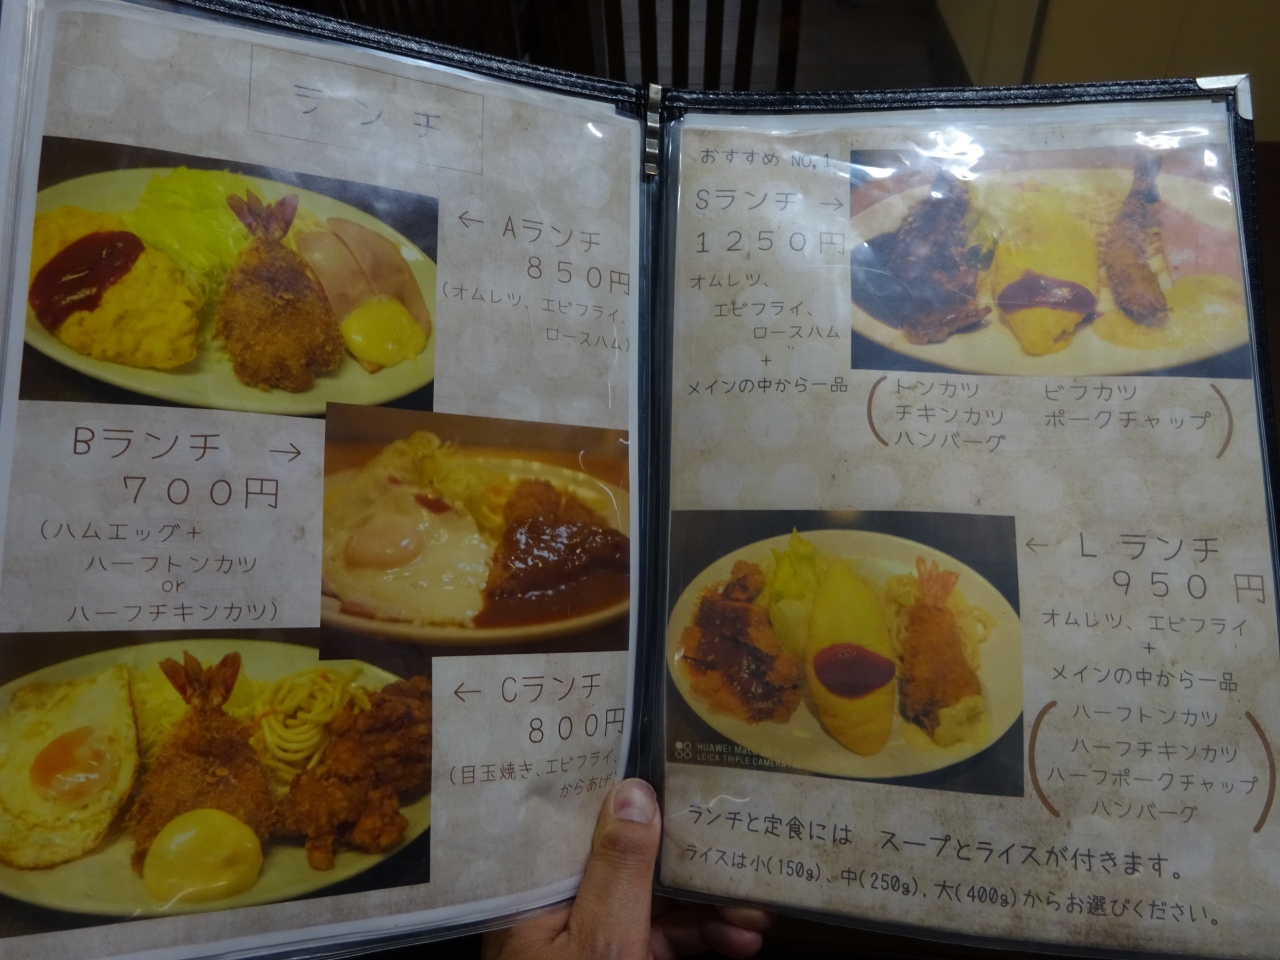 ランチ
← Aランチ
850円
(オムレツ、エビフライ、
ロースハム)
Bランチ →
700円
(ハムエッグ+
ハーフトンカツ
or
ハーフチキンカツ)
← Cランチ
800円
(目玉焼き、エビフライ、
からあげ)
おすすめ NO,1
Sランチ →
1250円
オムレツ、
エビフライ、
ロースハム
+
メインの中から一品
(トンカツ ビフカツ
チキンカツ ポークチャップ)
ハンバーグ
← L ランチ
950 円
オムレツ、エビフライ
+
メインの中から一品
(ハーフトンカツ
ハーフチキンカツ
ハーフポークチャップ)
ハンバーグ
HUAWEI
LEICA TRIPLE CAMERA
ランチと定食には スープとライスが付きます。
ライスは小(150g)、中(250g)、大(400g)からお選びください。